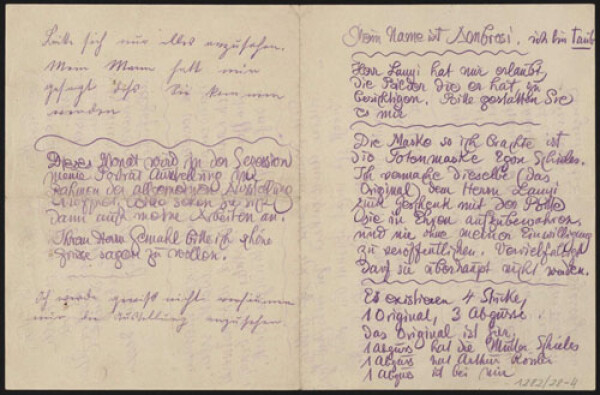 Bitte sich nur alles anzusehen.
Mein Mann hat mir
gesagt dass Sie kommen
werden
Dieses Monat wird in der Secession
meine Porträt Ausstellung im
Rahmen der allgemeinen Ausstellung
eröffnet, bitte sehen Sie sich
dann auch meine Arbeiten an!
Ihren Herrn Gemahl bitte ich schöne
Grüsse sagen zu wollen.
Ich werde gewiss nicht versäumen
mir die Ausstellung anzusehen
Mein Name ist Ambrosi, ich bin taub
Herr Lanyi hat mir erlaubt,
die Bilder die er hat zu
besichtigen. Bitte gestatten Sie
es mir
Die Maske so ich brachte ist
die Totenmaske Egon Schieles.
Ich vermache dieselbe (das
Original) dem Herrn Lanyi
zum Geschenk mit der Bitte
sie in Ehren aufzubewahren,
und nie ohne meiner Einwilligung
zu veröffentlichen. Vervielfältigt
darf sie überhaupt nicht werden.
Es existieren 4 Stücke,
1 Original, 3 Abgüsse.
Das Original ist hier.
1 Abguss hat die Mutter Schieles
1 Abguss hat Arthur Roessler
1 Abguss ist bei mir
1282/28-4